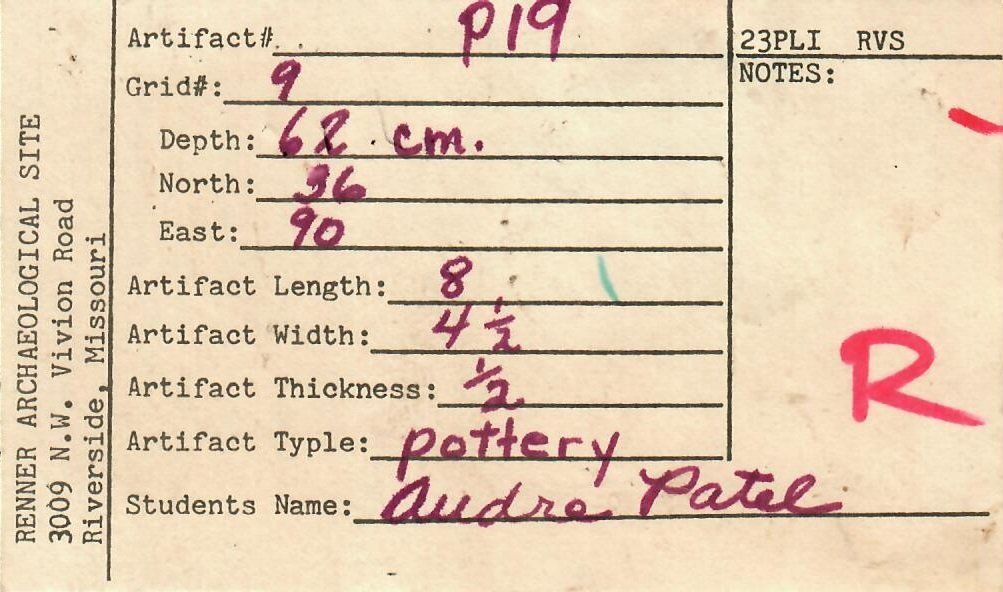 RENNER ARCHAEOLOGICAL SITE
3009 N.W. Vivion Road
Riverside, Missouri
Artifact# P19
Grid#: 9
Depth: 62 cm.
North: 36
East: 90
Artifact Length: 8
Artifact Width: 4 1/2
Artifact Thickness: 1/2
Artifact Typle: pottery
Students Name: Audra Patel
23PLI RVS
NOTES:
R